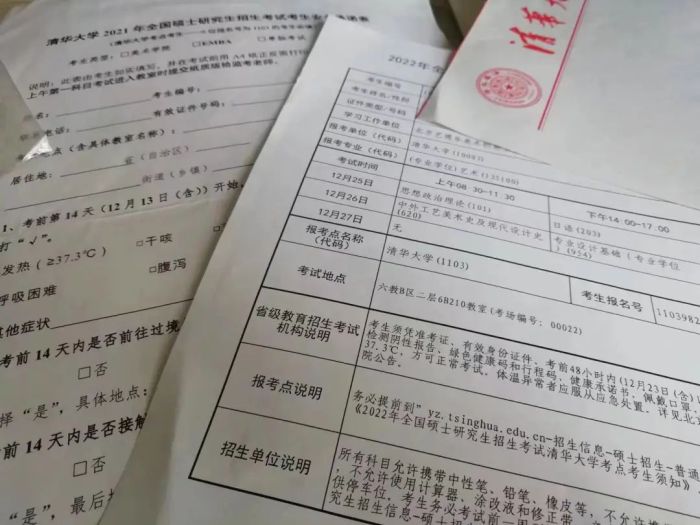 清华大学 2021 年全国硕士研究生招生考试考生
考生类型：□美术学院 □EMBA □单独考试
说明：此表由考生如实填写，并在考试前用 A4 纸正反面打印
上午第一科目考试进入教室时提交纸质版给监考老师。
考生编号：
有效证件号码：
电话：
地点（含具体教室名称）：
居住地： 省（自治区）
街道（乡镇）
1、考前第 14 天（12 月 13 日（含））开始，
打“√”。
发热（≥37.3℃） □干咳
□腹泻
呼吸困难
其他症状
考前 14 天内是否前往过境
□否
择“是”，具体地点：
前 14 天内是否接触
□否
“是”，最后
2022年全
考生编号
考生姓名/性别
证件类型/号码
学习工作单位
报考单位（代码） 清华大学(10003)
报考专业（代码） (专业学位)艺术(135100)
考试时间 上午08:30-11:30 下午14:00-17:00
12月25日 思想政治理论(101) 日语(203)
12月26日 中外工艺美术史及现代设计史(620) 专业设计基础（专业学位）(954)
12月27日 无
报考点名称（代码） 清华大学(1103)
考生报名号 1103982
考试地点 六教B区二层6B210教室(考场编号：00022)
省级教育招生考试机构说明
考生须凭准考证、有效身份证件、考前48小时内(12月23日(含)
检测阴性报告、绿色健康码和行程码、健康承诺书、佩戴口罩
37.3℃，方可正常考试。体温异常者应服从应急处置。详见北京
院公告。
报考点说明
务必提前到"yz.tsinghua.edu.cn-招生信息-硕士招生-普通
《2022年全国硕士研究生招生考试清华大学考点考生须知》
招生单位说明
所有科目允许携带中性笔、铅笔、橡皮等，不允许携
，不允许使用计算器、涂改液和修正带
供停车位。考生务必考试前一周
究生招生信息-硕
清华大